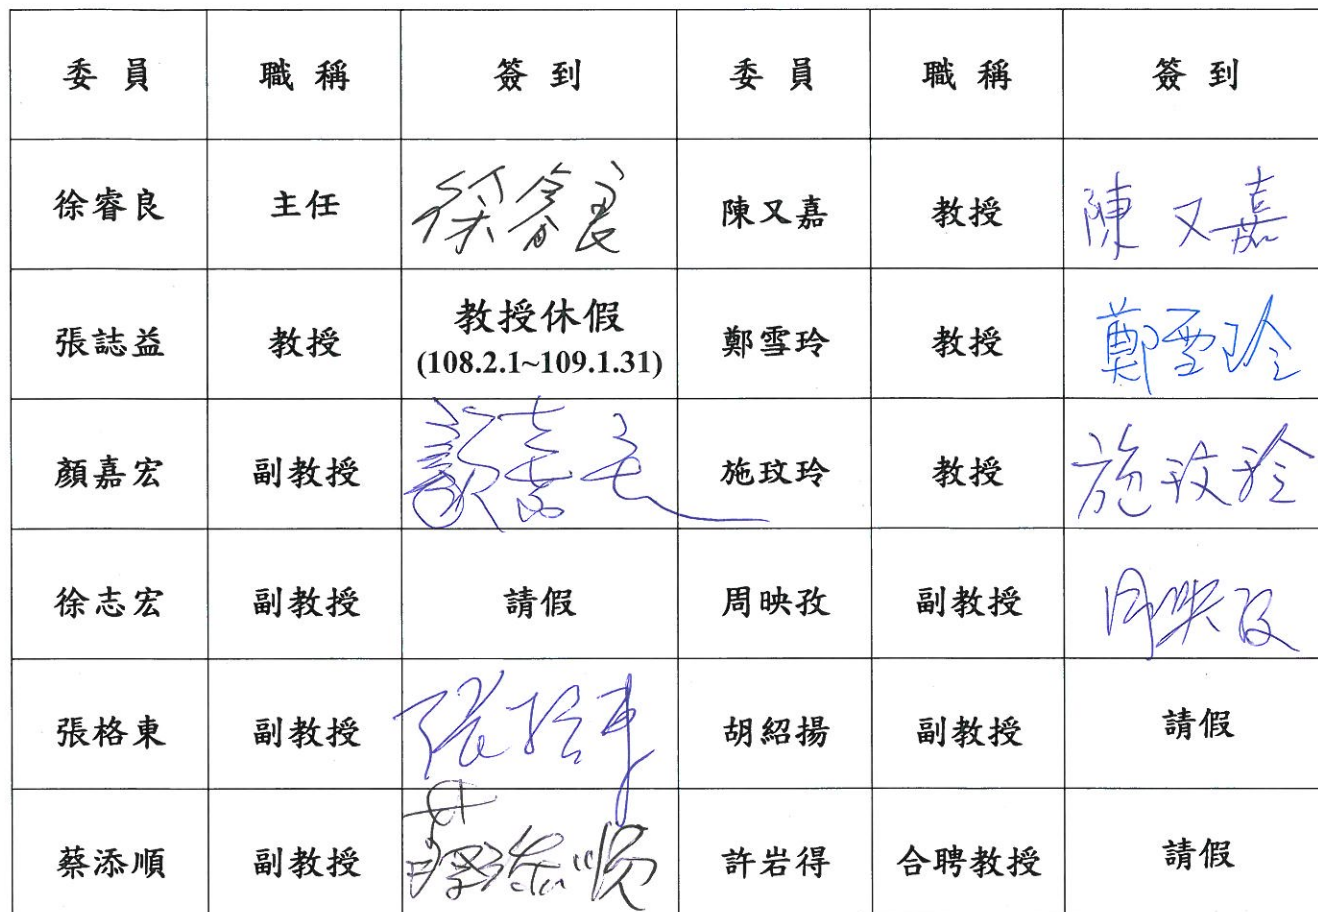 委員 職稱 簽到 委員 職稱 簽到
徐睿良 主任 徐睿良 陳又嘉 教授 陳又嘉
張誌益 教授 教授休假 鄭雪玲 教授 鄭雪玲
(108.2.1~109.1.31)
顏嘉宏 副教授 顏嘉宏 施玟玲 教授 施玟玲
徐志宏 副教授 請假 周映孜 副教授 周映孜
張格東 副教授 張格東 胡紹揚 副教授 請假
蔡添順 副教授 蔡添順 許岩得 合聘教授 請假